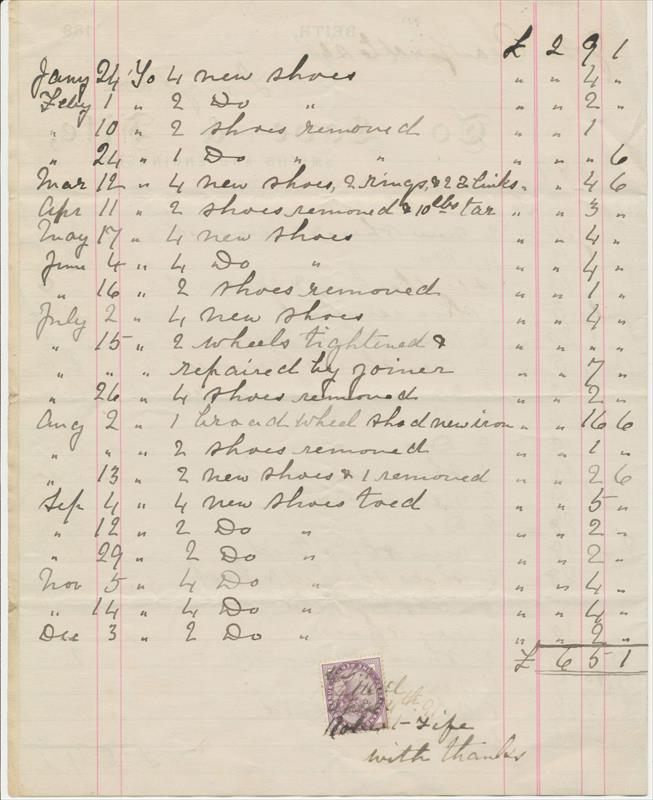 £ 2 9 1
Jany 24 To 4 new shoes " " 4 "
Feby 1 " 2 Do " " " 2 "
" 10 " 2 shoes removed " " 1
" 24 " 1 Do " " " " " 6
Mar 12 " 4 new shoes, 2 rings, & 2 links " " 4 6
Apr 11 " 2 shoes removed & 10 lbs tar " " 3 "
May 17 " 4 new shoes " " 4 "
June 4 " 4 Do " " " 4 "
" 16 " 2 shoes removed " " 1 "
July 2 " 4 new shoes " " 4 "
" 15 " 2 wheels tightened & " " " "
" " " repaired by joiner " " 7 "
" 26 " 4 shoes removed " " 2 "
Aug 2 " 1 broad wheel shod new iron " " 16 6
" " " 2 shoes removed " " 1 "
" 13 " 2 new shoes & 1 removed " " 2 6
Sep 4 " 4 new shoes toed " " 5 "
" 12 " 2 Do " " " 2 "
" 29 " 2 Do " " " 2 "
Nov 5 " 4 Do " " " 4 "
" 14 " 4 Do " " " 4 "
Dec 3 " 2 Do " " " 2 "
£ 6 5 1
Robert Fife
with thanks